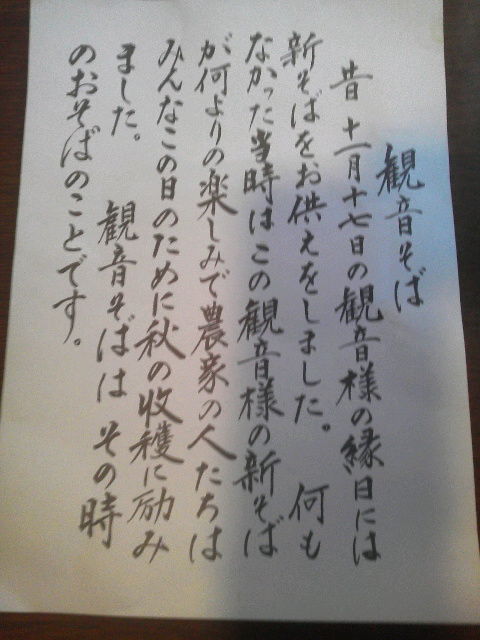 観音そば
昔 十一月十七日の観音様の縁日には
新そばをお供えをしました。 何も
なかった当時はこの観音様の新そば
が何よりの楽しみで農家の人たちは
みんなこの日のために秋の収穫に励み
ました。 観音そばは その時
のおそばのことです。